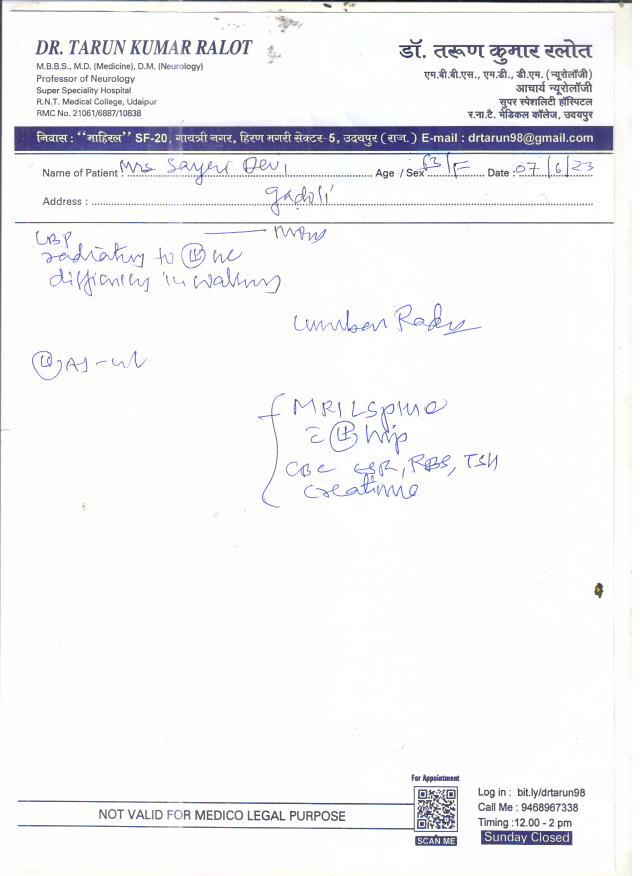 DR. TARUN KUMAR RALOT
M.B.B.S., M.D. (Medicine), D.M. (Neurology)
Professor of Neurology
Super Speciality Hospital
R.N.T. Medical College, Udaipur
RMC No. 21061/6887/10838
डॉ. तरूण कुमार रलोत
एम.बी.बी.एस., एम.डी., डी.एम. (न्यूरोलॉजी)
आचार्य न्यूरोलॉजी
सुपर स्पेशलिटी हॉस्पिटल
र.ना.टै. मेडिकल कॉलेज, उदयपुर
निवास : "माहिरल" SF-20, गायत्री नगर, हिरण मगरी सेक्टर-5, उदयपुर (राज.) E-mail : drtarun98@gmail.com
Name of Patient : Mrs Sayeri Devi Age / Sex 63/F Date : 07/6/23
Address : gadoli
LBP
radiating to (Lt)
difficulty in walking
Lumbar Radi
MRI LSpine
c (Lt) hip
CBC ESR, RBS, TSH
creatinine
For Appointment
SCAN ME
Log in : bit.ly/drtarun98
Call Me : 9468967338
Timing :12.00 - 2 pm
Sunday Closed
NOT VALID FOR MEDICO LEGAL PURPOSE